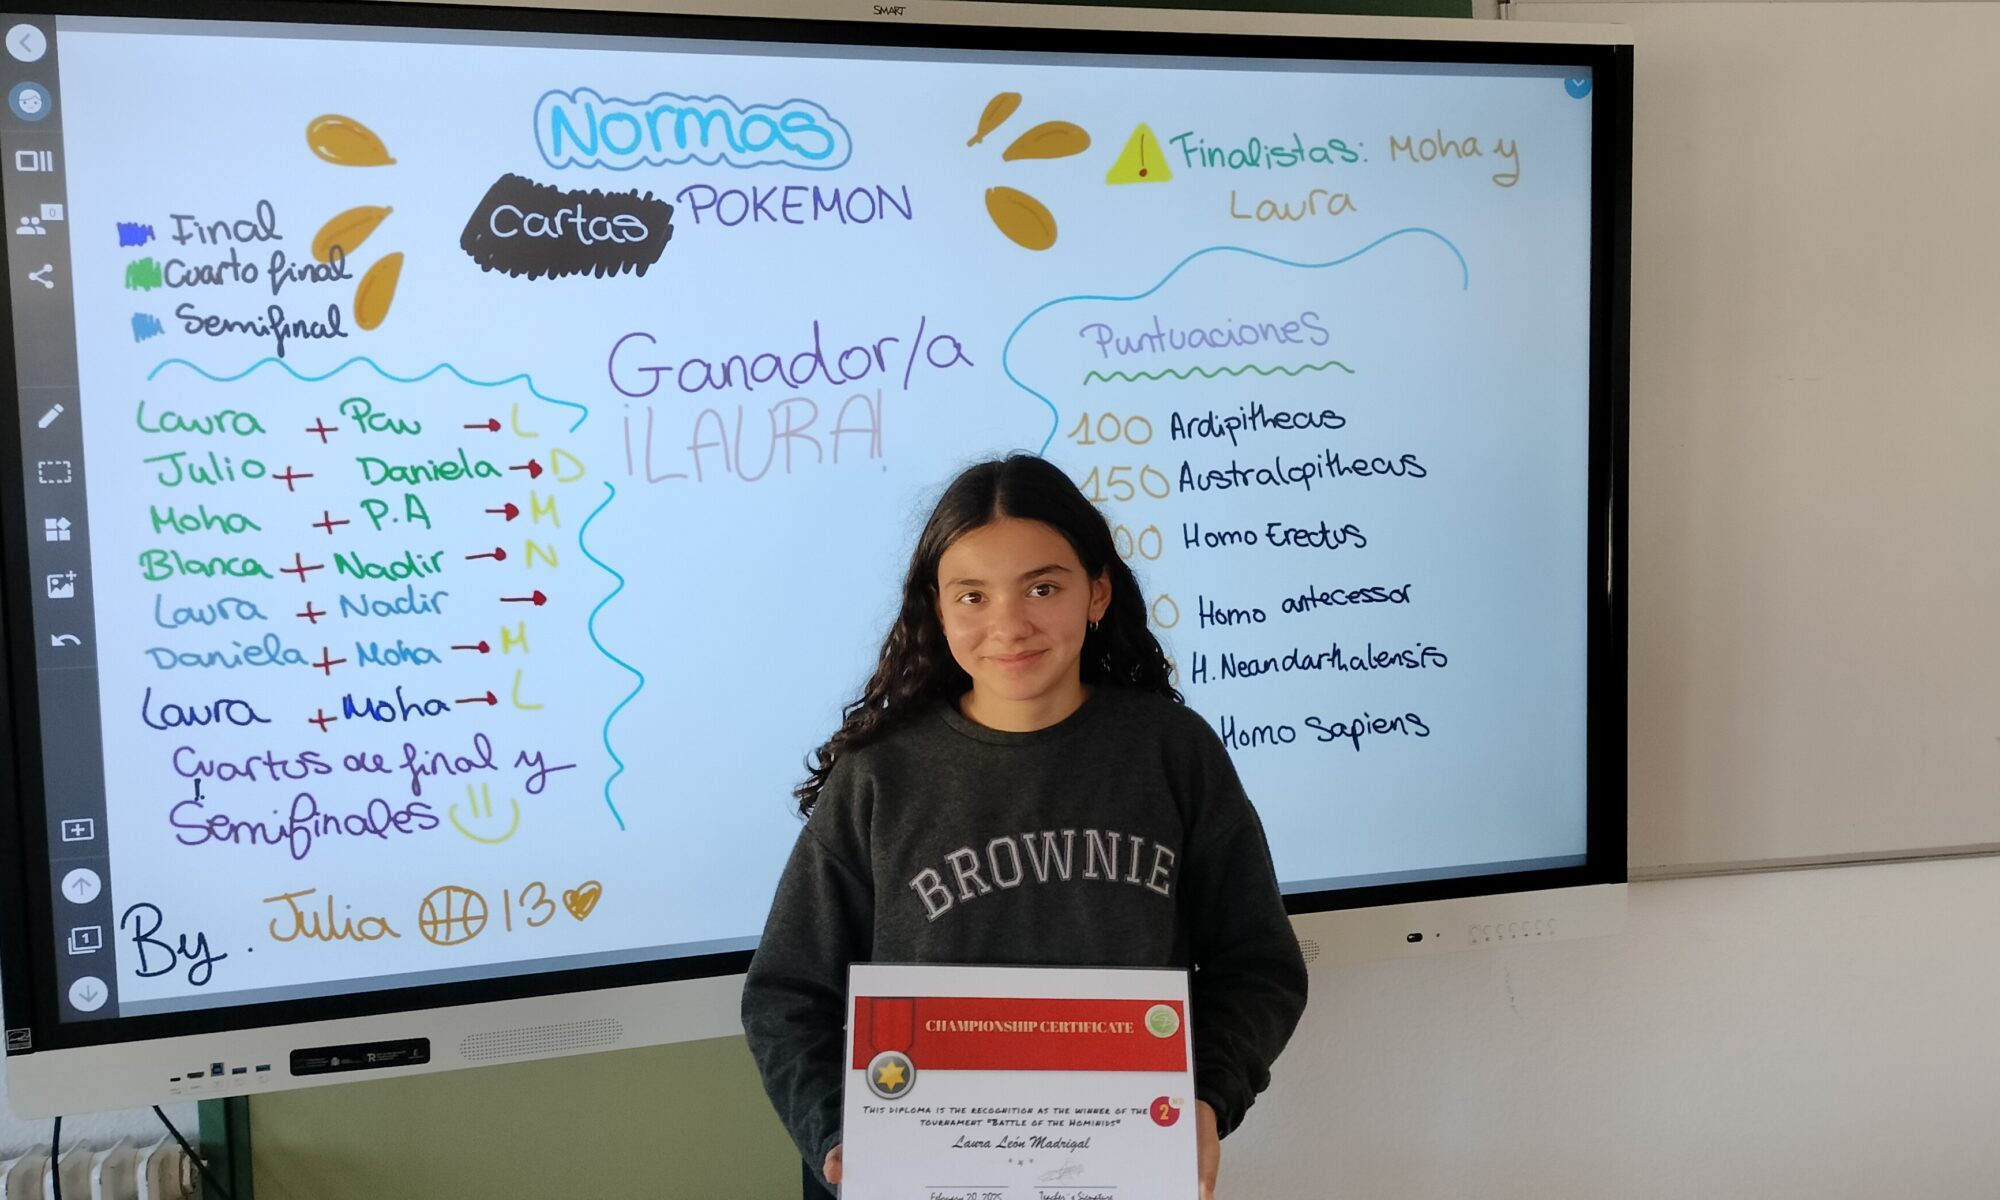 SMART
Normas
Cartas POKEMON
Finalistas: Moha y
Laura
Final
Cuarto final
Semifinal
Ganador/a
¡LAURA!
Laura + Pau → L
Julio + Daniela → D
Moha + P.A → M
Blanca + Nadir → N
Laura + Nadir →
Daniela + Moha → M
Laura + Moha → L
Cuartos de final y
Semifinales
By. Julia 13
Puntuaciones
100 Ardipithecus
150 Australopithecus
00 Homo Erectus
0 Homo antecessor
H. Neandarthalensis
Homo Sapiens
BROWNIE
CHAMPIONSHIP CERTIFICATE
THIS DIPLOMA IS THE RECOGNITION AS THE WINNER OF THE
TOURNAMENT "BATTLE OF THE HOMINIDS"
2
Laura León Madrigal
February 20, 2025
Teacher's Signature
0
1